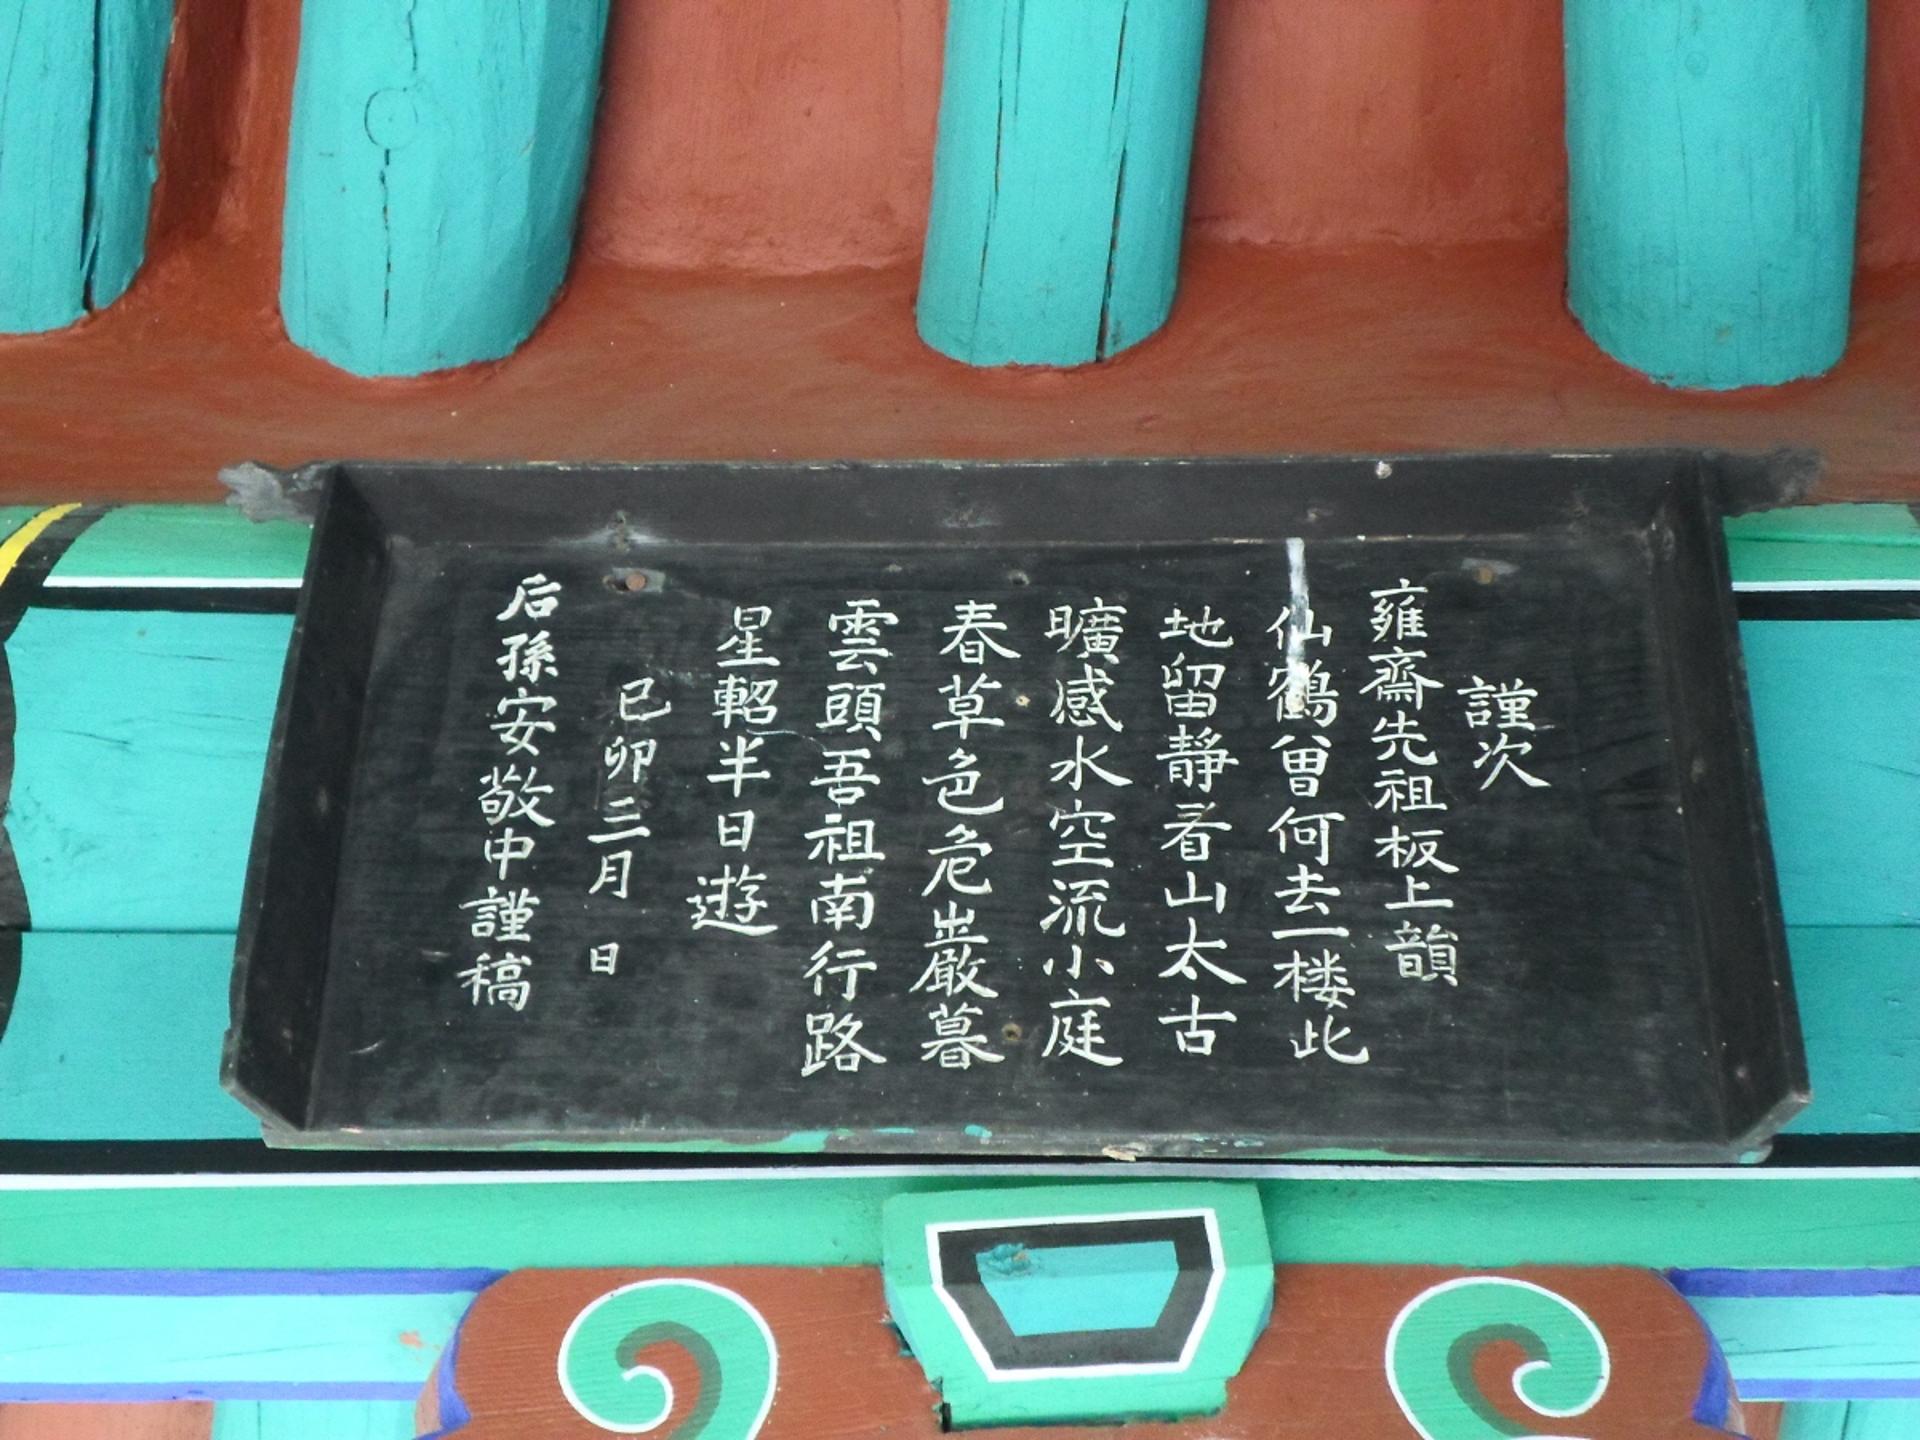 謹次
雍齋先祖板上韻
仙鶴曾何去一楼此
地留靜看山太古
曠感水空流小庭
春草色危岀嚴暮
雲頭吾祖南行路
星軺半日遊
己卯三月 日
后孫安敬中謹稿